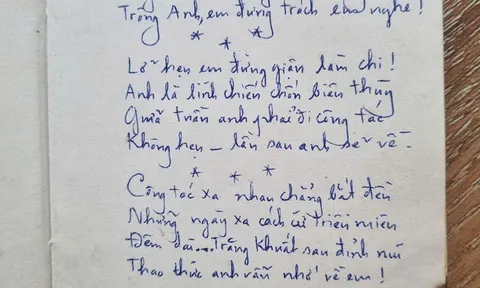 Trọng Anh, em đừng trách em nghe!
* * *
Lỡ hẹn em đừng giận làm chi!
Anh là lính chiến chốn biên thùy
Giữa tuần anh phải đi công tác
Không hẹn – lần sau anh sẽ về.
* * *
Công tác xa nhau chẳng bắt đền
Những ngày xa cách cứ triền miên
Đêm dài... Trăng khuất sau đỉnh núi
Thao thức anh vẫn nhớ về em!